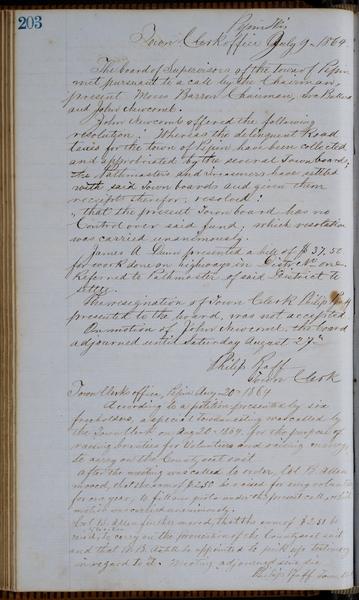 203
Pepin Wis.
Town Clerk office July 9. 1864
The board of Supervisors of the town of Pepin
met pursuant to a call by the Chairman
present Moses Barron Chairman, Ira
and John Newcomb.
John Newcomb offered the following
resolution: Whereas the delinquent Road
taxes for the town of Pepin have been collected
and appropriated by the several Town boards;
the Pathmasters and treasurers have settled
with said Town boards and given them
receipts therefor, resolved:
"that the present Town board has no
Control over said fund; which resolution
was carried unanimously.
James A. Dunn presented a bill of $37.50
for work done on highway in District one
Referred to Pathmaster of said District to
settle
The resignation of Town Clerk Philip Pfaff
presented to the board, was not accepted
On motion of John Newcomb, the board
adjourned until Saturday August 27th
Philip Pfaff
Town Clerk
Town Clerks office, Pepin Aug 20th 1864
According to a petition presented by six
freeholders, a special Town meeting was called by
the Town Clerk on Aug 20. 1864, for the purpose of
raising bounties for Volunteers and raising money
to carry on the County seat suit
after the meeting was called to order, Col B. Allen
moved, that the sum of $250 be raised for every volunteer
for one year, to fill our quota under the present call, which
motion was carried unanimously.
Col B. Allen further moved, that the sum of $250 be
raised, to carry on the prosecution of the County seat suit
and that be appointed to pick up testimony
in regard to it. Meeting adjourned sine die
Philip Pfaff Town